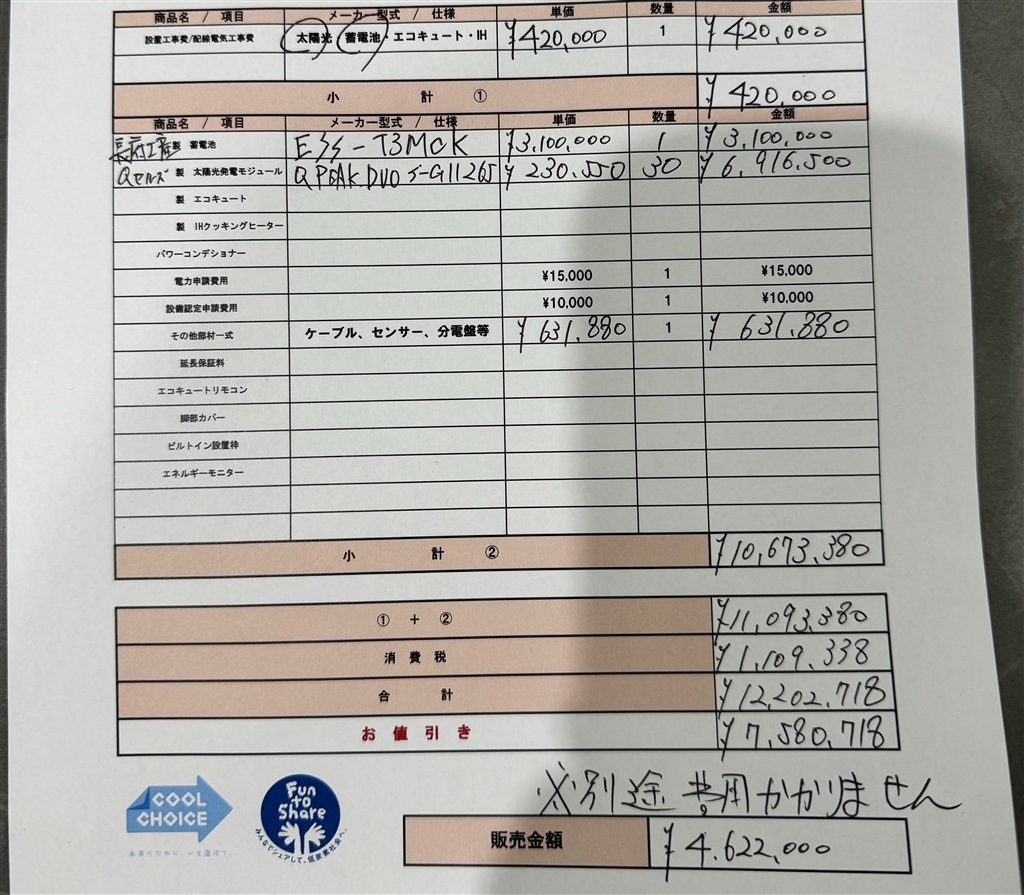 商品名 / 項目 メーカー型式 / 仕様 単価 数量 金額
設置工事費/配線電気工事費 太陽光・蓄電池・エコキュート・IH ¥420,000 1 ¥420,000
小計① ¥420,000
商品名 / 項目 メーカー型式 / 仕様 単価 数量 金額
長府工産製 蓄電池 ESS-T3MCK ¥3,100,000 1 ¥3,100,000
Qセルズ製 太陽光発電モジュール Q.PEAK DUO S-G11 265 ¥230,550 30 ¥6,916,500
製 エコキュート
製 IHクッキングヒーター
パワーコンデショナー
電力申請費用 ¥15,000 1 ¥15,000
設備認定申請費用 ¥10,000 1 ¥10,000
その他部材一式 ケーブル、センサー、分電盤等 ¥631,880 1 ¥631,880
延長保証料
エコキュートリモコン
脚部カバー
ビルトイン設置枠
エネルギーモニター
小計② ¥10,673,380
① + ② ¥11,093,380
消費税 ¥1,109,338
合計 ¥12,202,718
お値引き ¥7,580,718
※別途費用かかりません
COOL
CHOICE
未来のために、いま選ぼう。
Fun
to
Share
みんなでシェアして、低炭素社会へ。
販売金額 ¥4,622,000